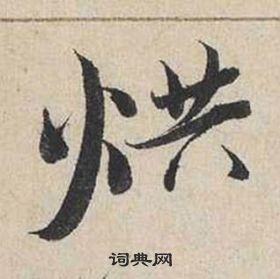 烘
词典网